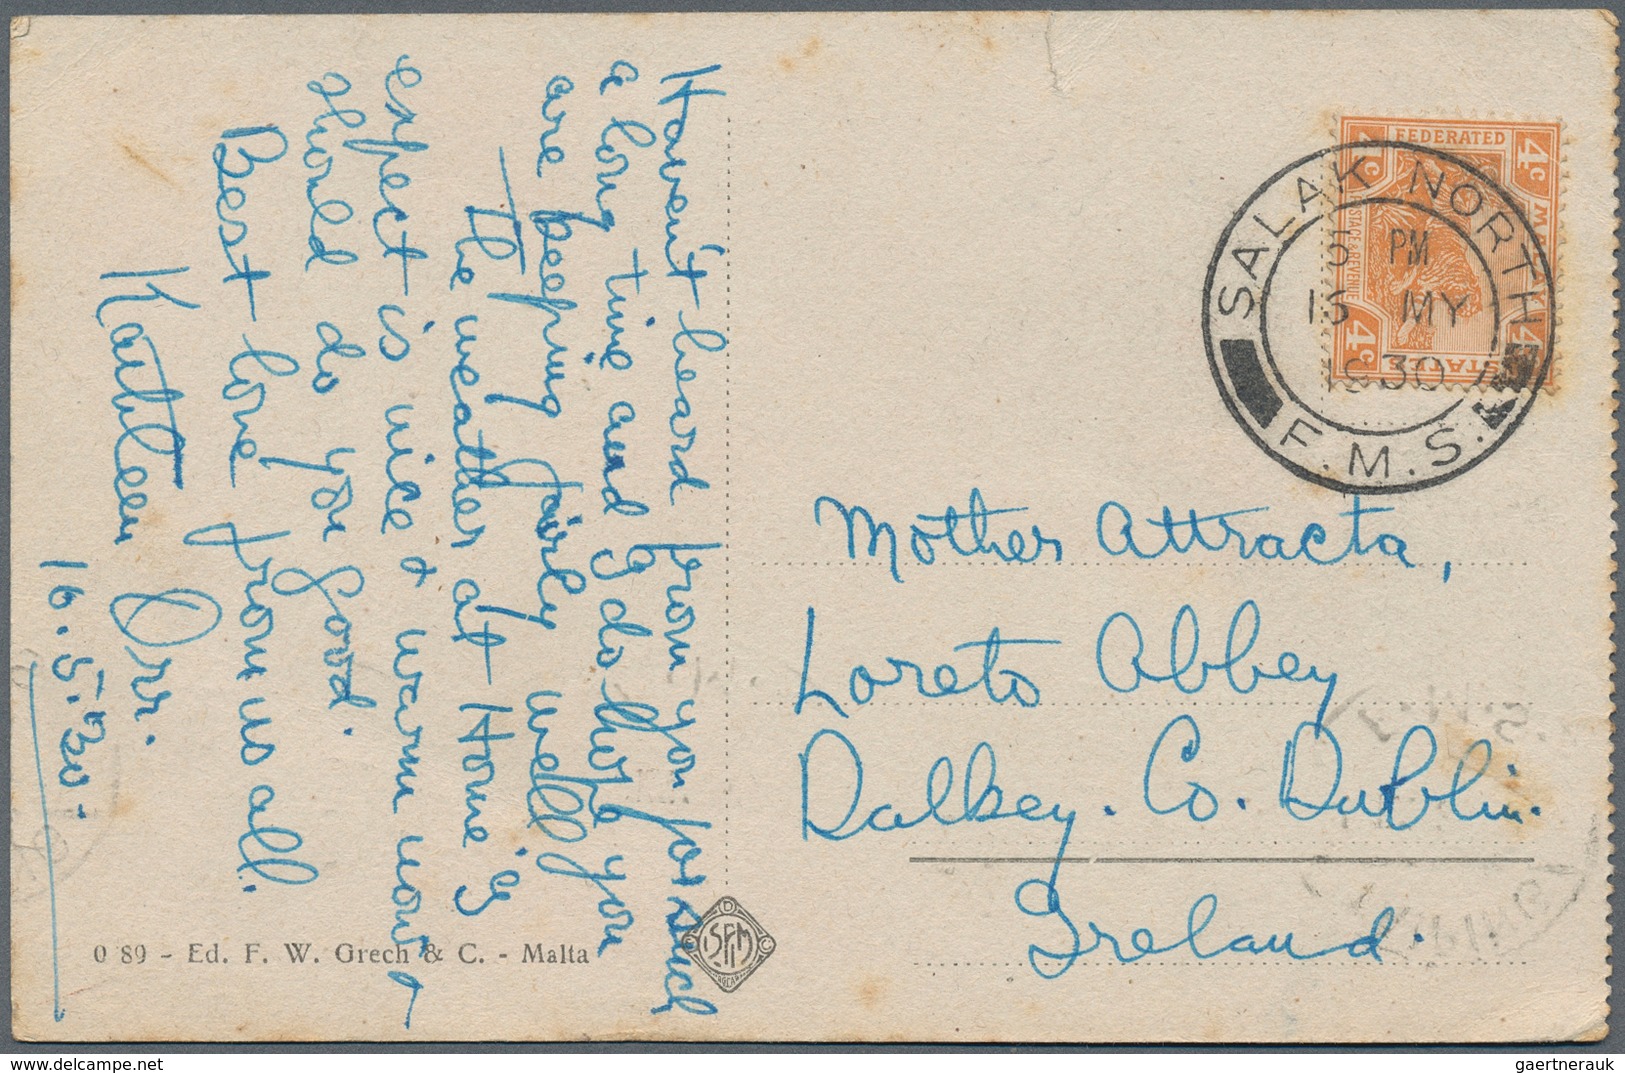 Haven't heard from you for such
a long time and I do hope you
are keeping fairly well.
The weather at Home is
expect is nice & warm now &
should do you good.
Best love from us all.
Kathleen Orr.
16.5.'30.
0 89 - Ed. F. W. Grech & C. - Malta
FEDERATED
MALAY
STATES
POSTAGE & REVENUE
4c
4c
4c
4c
SALAK NORTH
5 PM
15 MY
1930
F.M.S.
Mother Attracta,
Loreto Abbey
Dalkey. Co. Dublin.
Ireland.
gaertnerauk
delcampe.net